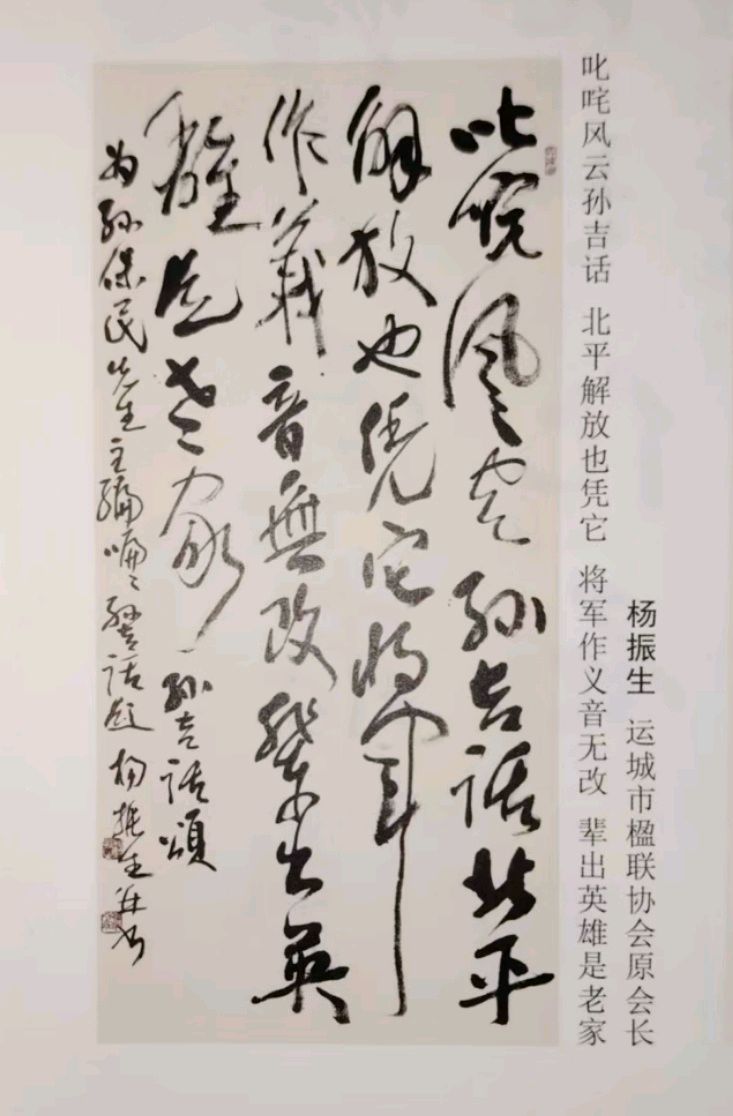 叱咤风云孙吉话 北平解放也凭它 将军作义音无改 辈出英雄是老家
杨振生 运城市楹联协会原会长
叱咤風雲孙吉話北平
解放也凭它将軍
作義音無改輩出英
雄是老家 孙吉話頌
为孙保民先生主编嘴嘴孙吉话题 杨振生并书